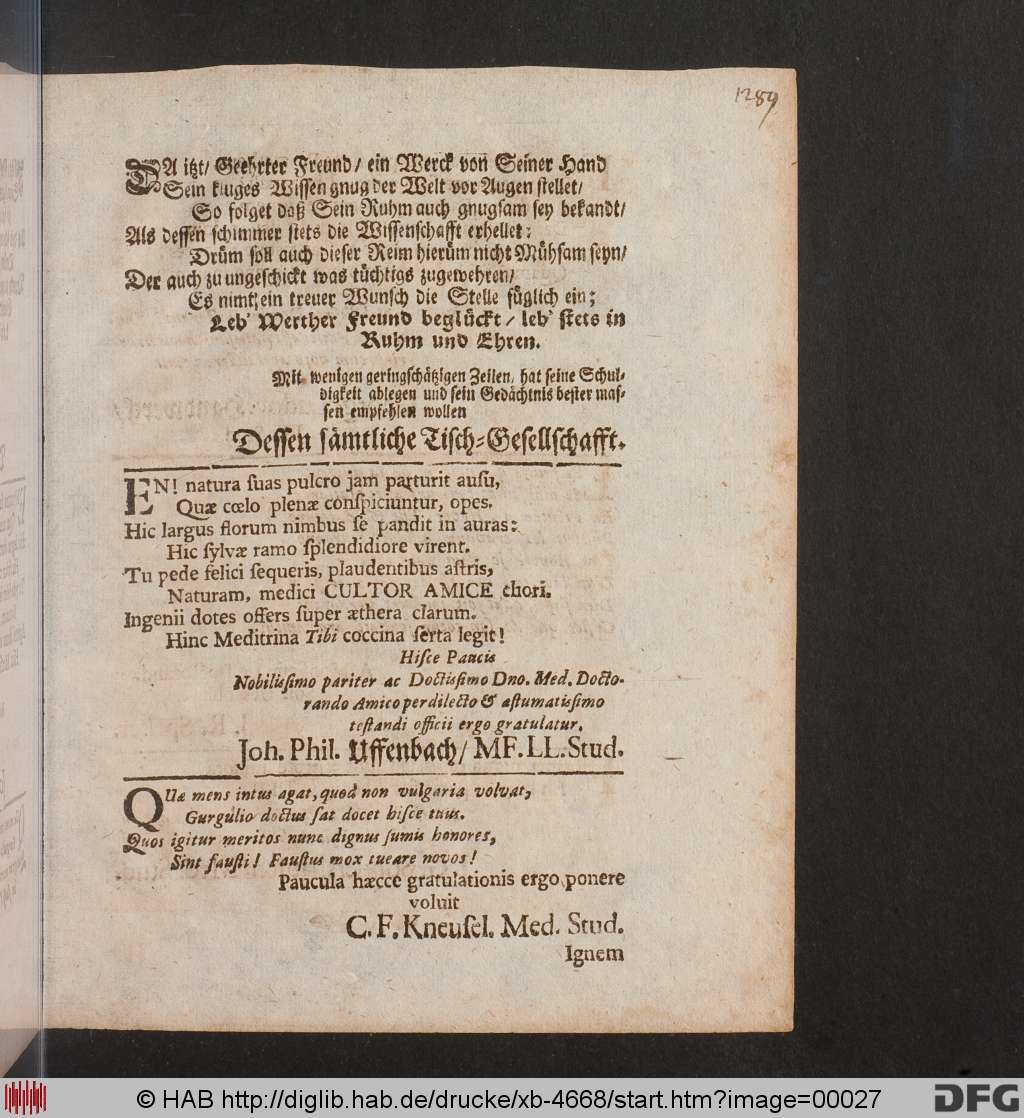 1289
DA itzt/ Geehrter Freund/ ein Werck von Seiner Hand
Sein kluges Wissen gnug der Welt vor Augen stellet/
So folget daß Sein Ruhm auch gnugsam sey bekandt/
Als dessen schimmer stets die Wissenschafft erhellet:
Drüm soll auch dieser Reim hierüm nicht Mühsam seyn/
Der auch zu ungeschickt was tüchtigs zugewehren/
Es nimt ein treuer Wunsch die Stelle füglich ein;
Leb' Werther Freund beglückt/ leb' stets in
Ruhm und Ehren.
Mit wenigen geringschätzigen Zeilen, hat seine Schul-
digkeit ablegen und sein Gedächtnis bester mas-
sen empfehlen wollen
Dessen sämtliche Tisch-Gesellschafft.
EN! natura ſuas pulcro jam parturit auſu,
Quæ cœlo plenæ conſpiciuntur, opes.
Hic largus florum nimbus ſe pandit in auras:
Hic ſylvæ ramo ſplendidiore virent.
Tu pede felici ſequeris, plaudentibus aſtris,
Naturam, medici CULTOR AMICE chori.
Ingenii dotes offers ſuper æthera clarum.
Hinc Meditrina Tibi coccina ſerta legit!
Hiſce Paucis
Nobiliſſimo pariter ac Doctiſſimo Dno. Med. Docto-
rando Amico perdilecto & æſtumatiſſimo
teſtandi officii ergo gratulatur.
Joh. Phil. Uffenbach/ MF. LL. Stud.
QUæ mens intus agat, quod non vulgaria volvat,
Gurgulio doctus ſat docet hiſce tuus.
Quos igitur meritos nunc dignus ſumis honores,
Sint fauſti! Fauſtus mox tueare novos!
Paucula hæcce gratulationis ergo ponere
voluit
C. F. Kneuſel. Med. Stud.
Ignem
© HAB http://diglib.hab.de/drucke/xb-4668/start.htm?image=00027
DFG